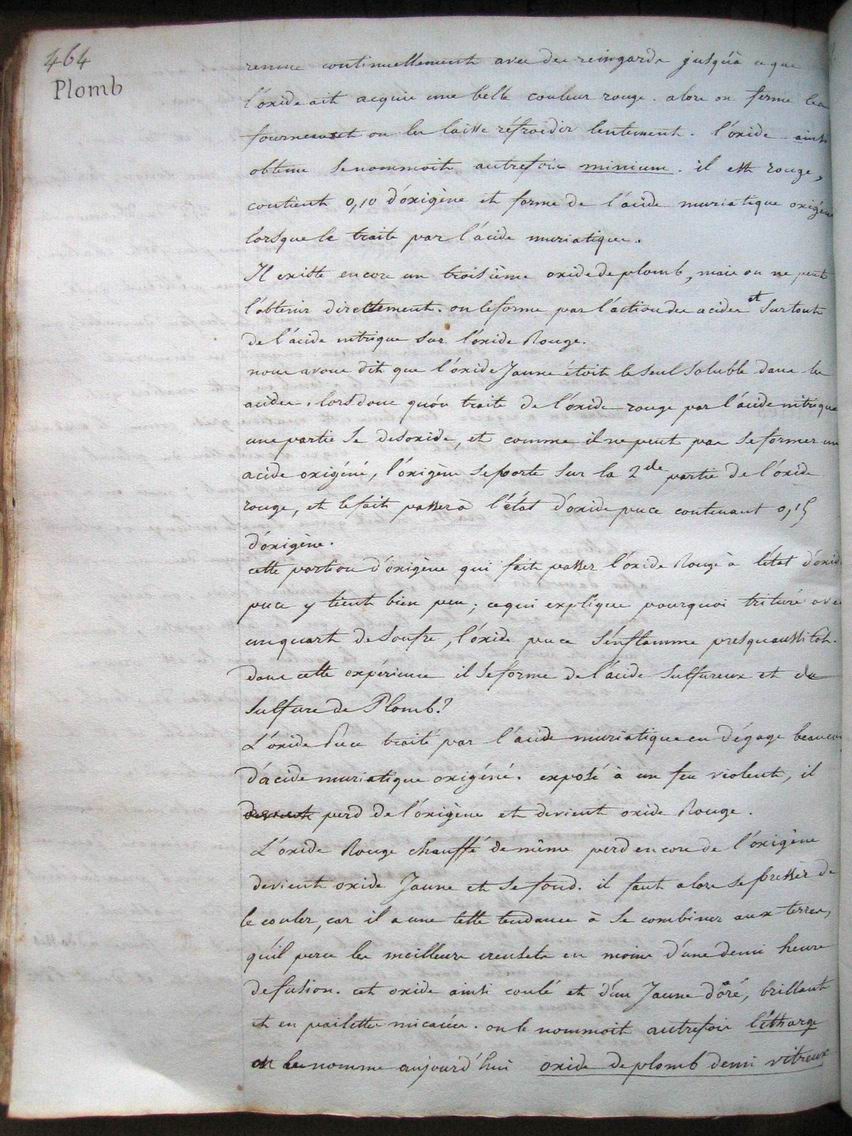 464
Plomb
remue continuellement avec des reingards jusqu'à ce que
l'oxide ait acquis une belle couleur rouge. alors on ferme les
fourneaux et on les laisse réfroidir lentement. l'oxide ainsi
obtenu se nommoit autrefois minium. il est rouge,
contient 0,10 d'oxigène et forme de l'acide muriatique oxigéné
lorsque le traite par l'acide muriatique.
Il existe encore un troisième oxide de plomb, mais on ne peut
l'obtenir directtement. on le forme par l'action des acides et surtout
de l'acide nitrique sur l'oxide Rouge.
nous avons dit que l'oxide Jaune étoit le seul soluble dans les
acides, lors donc qu'on traite de l'oxide rouge par l'acide nitrique
une partie se desoxide, et comme il ne peut pas se former un
acide oxigéné, l'oxigène se porte sur la 2de partie de l'oxide
rouge, et le fait passer à l'état d'oxide puce contenant 0,15
d'oxigène.
cette portion d'oxigène qui fait passer l'oxide Rouge à l'état d'oxide
puce y tient bien peu; ce qui explique pourquoi trituré avec
un quart de soufre, l'oxide puce s'enflamme presqu'aussitôt.
dans cette expérience il se forme de l'acide sulfureux et du
sulfure de Plomb?
L'oxide Puce traité par l'acide muriatique en dégage beaucoup
d'acide muriatique oxigéné. exposé à un feu violent, il
devient perd de l'oxigène et devient oxide Rouge.
L'oxide Rouge chauffé de même perd encore de l'oxigène
devient oxide Jaune et se fond. il faut alors se presser de
le couler, car il a une telle tendance à se combiner aux terres,
qu'il perce les meilleurs creusets en moins d'une demi heure
de fusion. cet oxide ainsi coulé et d'un Jaune doré, brillant
et en paillettes micacées. on le nommoit autrefois létharge
on le nomme aujourd'hui oxide de plomb demi vitreux